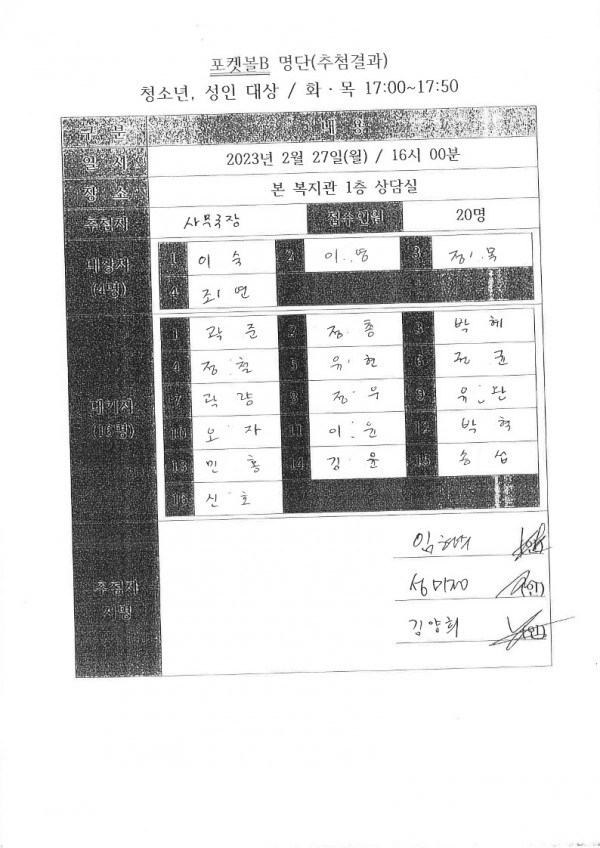 포켓볼B 명단(추첨결과)
청소년, 성인 대상 / 화 · 목 17:00~17:50
구 분 내 용
일 시 2023년 2월 27일(월) / 16시 00분
장 소 본 복지관 1층 상담실
추첨자 사무국장 접수인원 20명
대상자
(4명)
1 이 숙 2 이 영 3 정 목
4 조 연
대기자
(16명)
1 곽 준 2 정 종 3 박 혜
4 정 철 5 유 현 6 전 권
7 곽 량 8 정 우 9 유 란
10 오 자 11 이 윤 12 박 혁
13 민 홍 14 김 윤 15 송 섭
16 신 호
추첨자
서명
임 (인)
성미정 (인)
김양희 (인)